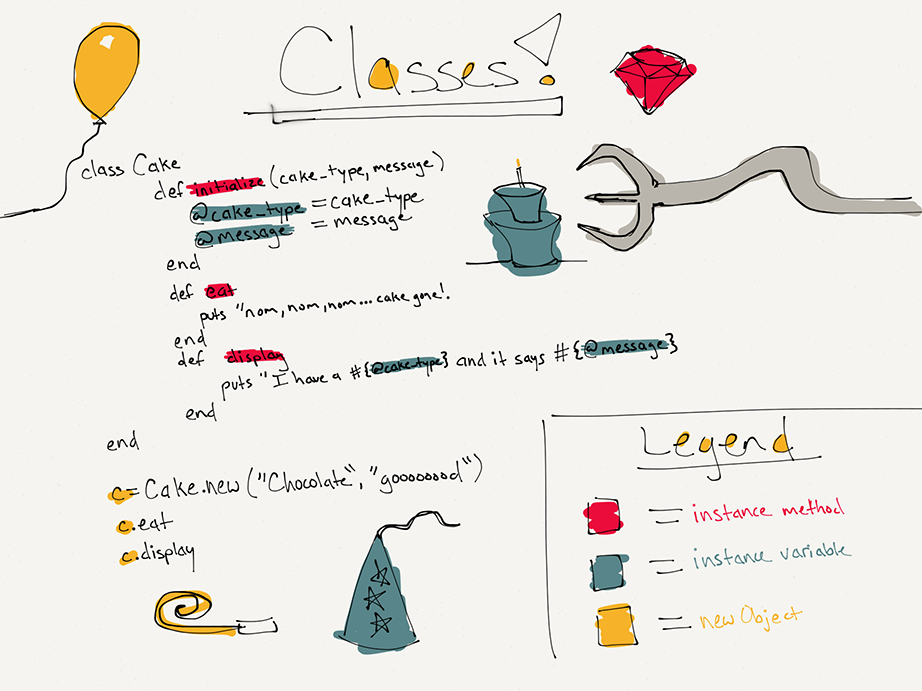 Classes!
class Cake
def initialize (cake_type, message)
@cake_type = cake_type
@message = message
end
def eat
puts "nom, nom, nom... cake gone!.
end
def display
puts "I have a #{@cake-type} and it says #{@message}
end
end
c = Cake.new ("Chocolate", "goooooood")
c.eat
c.display
Legend
= instance method
= instance variable
= new Object